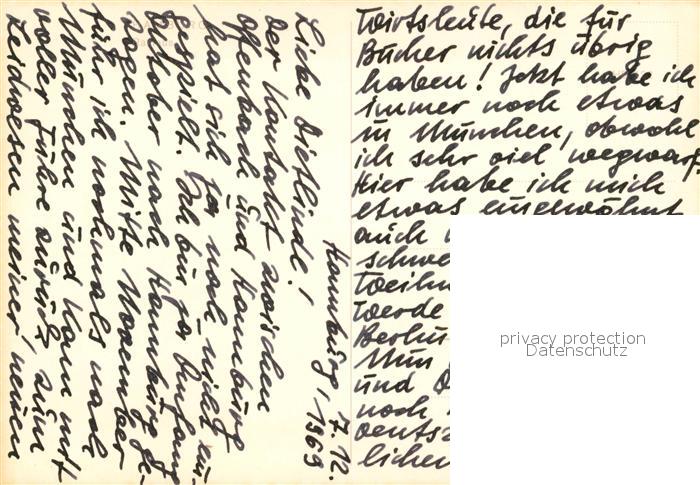 Hamburg, 7.12.
1969
Liebe Dietlinde!
Der Kontakt zwischen
Offenbach und Hamburg
hat sich ja noch nicht ein-
gespielt. Ich bin ja Anfang
Oktober nach Hamburg ge-
zogen. Mitte November
fuhr ich nochmals nach
München und kam mit
voller Fuhre zurück zum
Leidwesen meiner neuen
Wirtsleute, die für
Bücher nichts übrig
haben! Jetzt habe ich
immer noch etwas
in München, obwohl
ich sehr viel wegwarf.
Hier habe ich mich
etwas eingewöhnt
auch
schwe
Weihn
werde
Berlin
Mun
und D
noch
Deutsc
lichen
privacy protection
Datenschutz